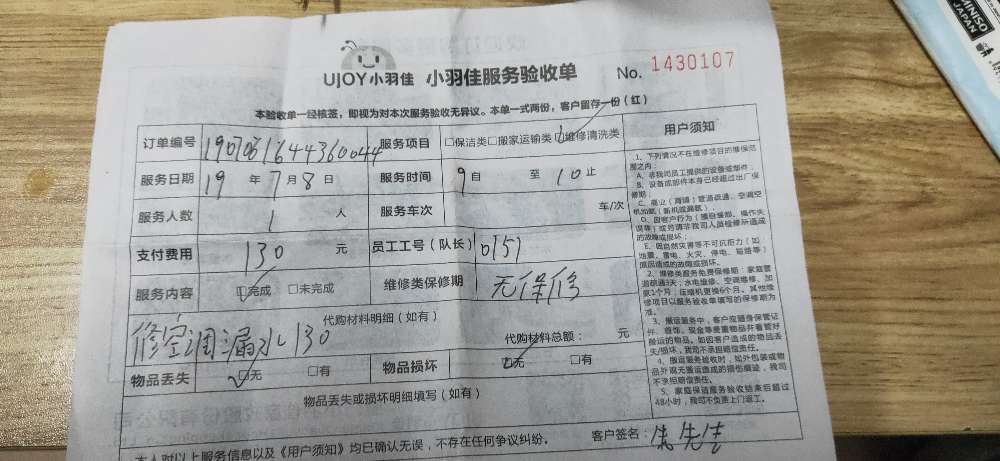 UJOY小羽佳 小羽佳服务验收单 No. 1430107
本验收单一经核签，即视为对本次服务验收无异议。本单一式两份，客户留存一份（红）
订单编号 1907031644360044 服务项目 □保洁类□搬家运输类□维修清洗类 用户须知
服务日期 19 年 7 月 8 日 服务时间 9 自 至 10 止
服务人数 1 人 服务车次 车/次
支付费用 130 元 员工工号（队长） 0151
服务内容 □完成 □未完成 维修类保修期 无保修
代购材料明细（如有）
修空调漏水 130 代购材料总额： 元
物品丢失 □无 □有 物品损坏 □无 □有
物品丢失或损坏明细填写（如有）
本人对以上服务信息以及《用户须知》均已确认无误，不存在任何争议纠纷。 客户签名： 朱先生
1、下列情况不在维修项目的维保范
围之内：
A、非我司员工提供的设备或部件；
B、设备或部件本身已经超过出厂保
修期；
C、商业（商铺）管道疏通、空调空
机加氟（新机或漏氟）
E、因自然灾害等不可抗拒力（如
地震、雷电、火灾、停电、短路等）
原因造成的故障或损坏。
2、维修类服务免费保修期：家庭管
道疏通3天；水电维修、空调维修、加
氟1个月；压缩机更换6个月，其他维
修项目以服务验收单填写的保修期为
准。
3、搬运服务中，客户应随身保管证
件、首饰、现金等贵重物品并看管好
搬运的物品。如因客户造成的物品丢
失/损坏，我司不承担赔偿责任。
4、搬运服务验收时，如外包装或物
品外观无搬运造成的损伤痕迹，我司
不承担赔偿责任。
5、家庭保洁服务验收结束后超过
48小时，我司不负责上门返工。
MINISO
JAPAN